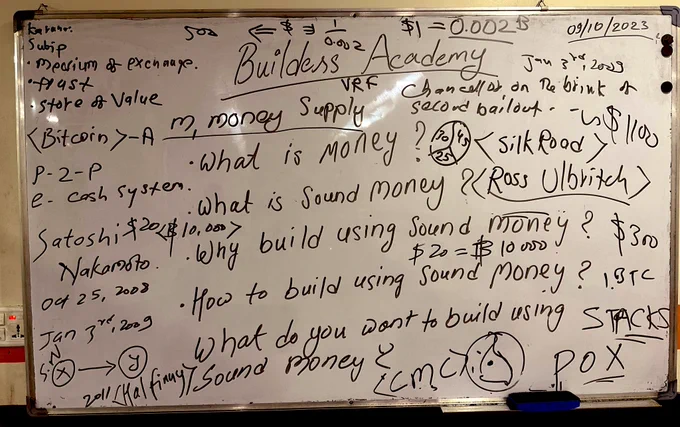 500 ⇐ $ ∃ 1/0.002
$1 = 0.002 ₿
09/10/2023
Subip
• medium of exchange.
• trust
• store of Value
Buildess Academy
VRF
Jan 3rd, 2009
Chancellor on The brink of
second bailout.
$1100
m, money Supply
<Bitcoin> - A
P-2-P
e-cash system.
• What is Money?
10 45
25
<SilkRoad>
• What is Sound money?
<Ross Ulbritch>
Satoshi $20 <$10,000>
Nakamoto.
• Why build using Sound money?
$300
$20 = ₿ 10000
Oct 25, 2008
• How to build using Sound Money?
1 BTC
Jan 3rd, 2009
What do you want to build using
STACKS
Sound money?
N
S: X → Y
2011 <Hal finny>
<CMC>
POX